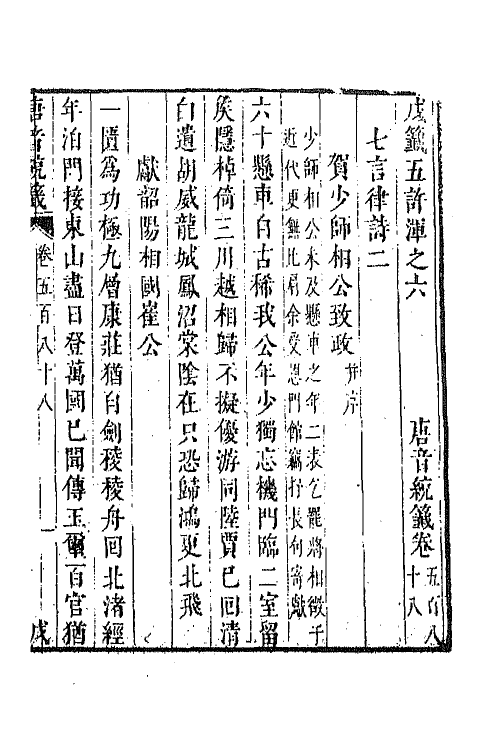 戊籤五許渾之六　唐音統籤卷五百八十八
七言律詩二
賀少師相公致政并序
少師相公未及懸車之年二表乞罷將相徵于
近代更無比肩余受恩門館竊抒長句寄獻
六十懸車自古稀我公年少獨忘機門臨二室留
侯隱棹倚三川越相歸不擬優游同陸賈已回清
白遺胡威龍城鳳沼棠陰在只恐歸鴻更北飛
獻韶陽相國崔公
一匱爲功極九層康莊猶自劍稜稜舟回北渚經
年泊門接東山盡日登萬國已聞傳玉璽百官猶
唐音統籤　卷五百八十八　一　戊